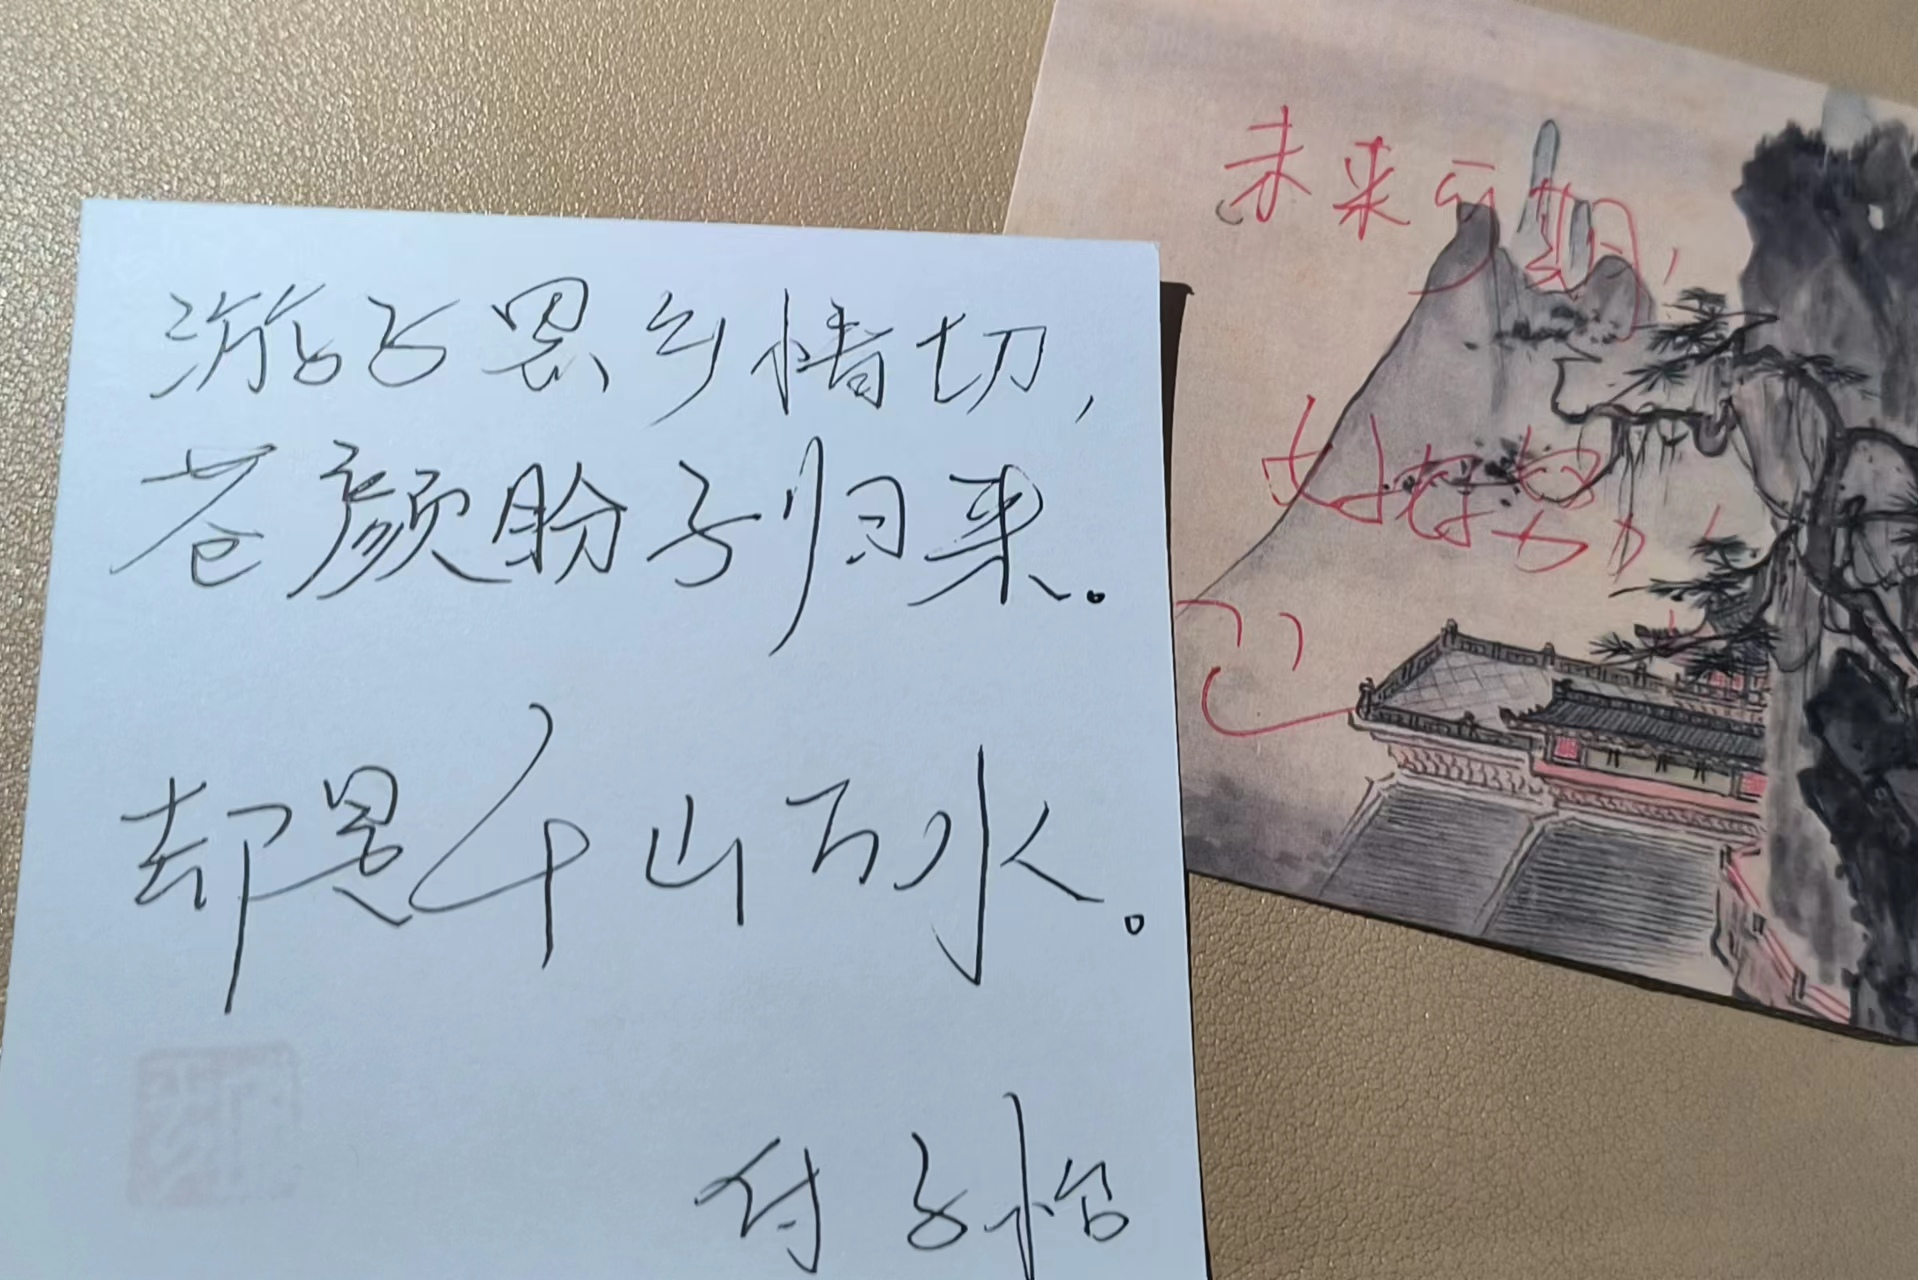 游子思乡情切，
苍颜盼子归来。
却是千山万水。
付子怡
未来可期，
好好努力